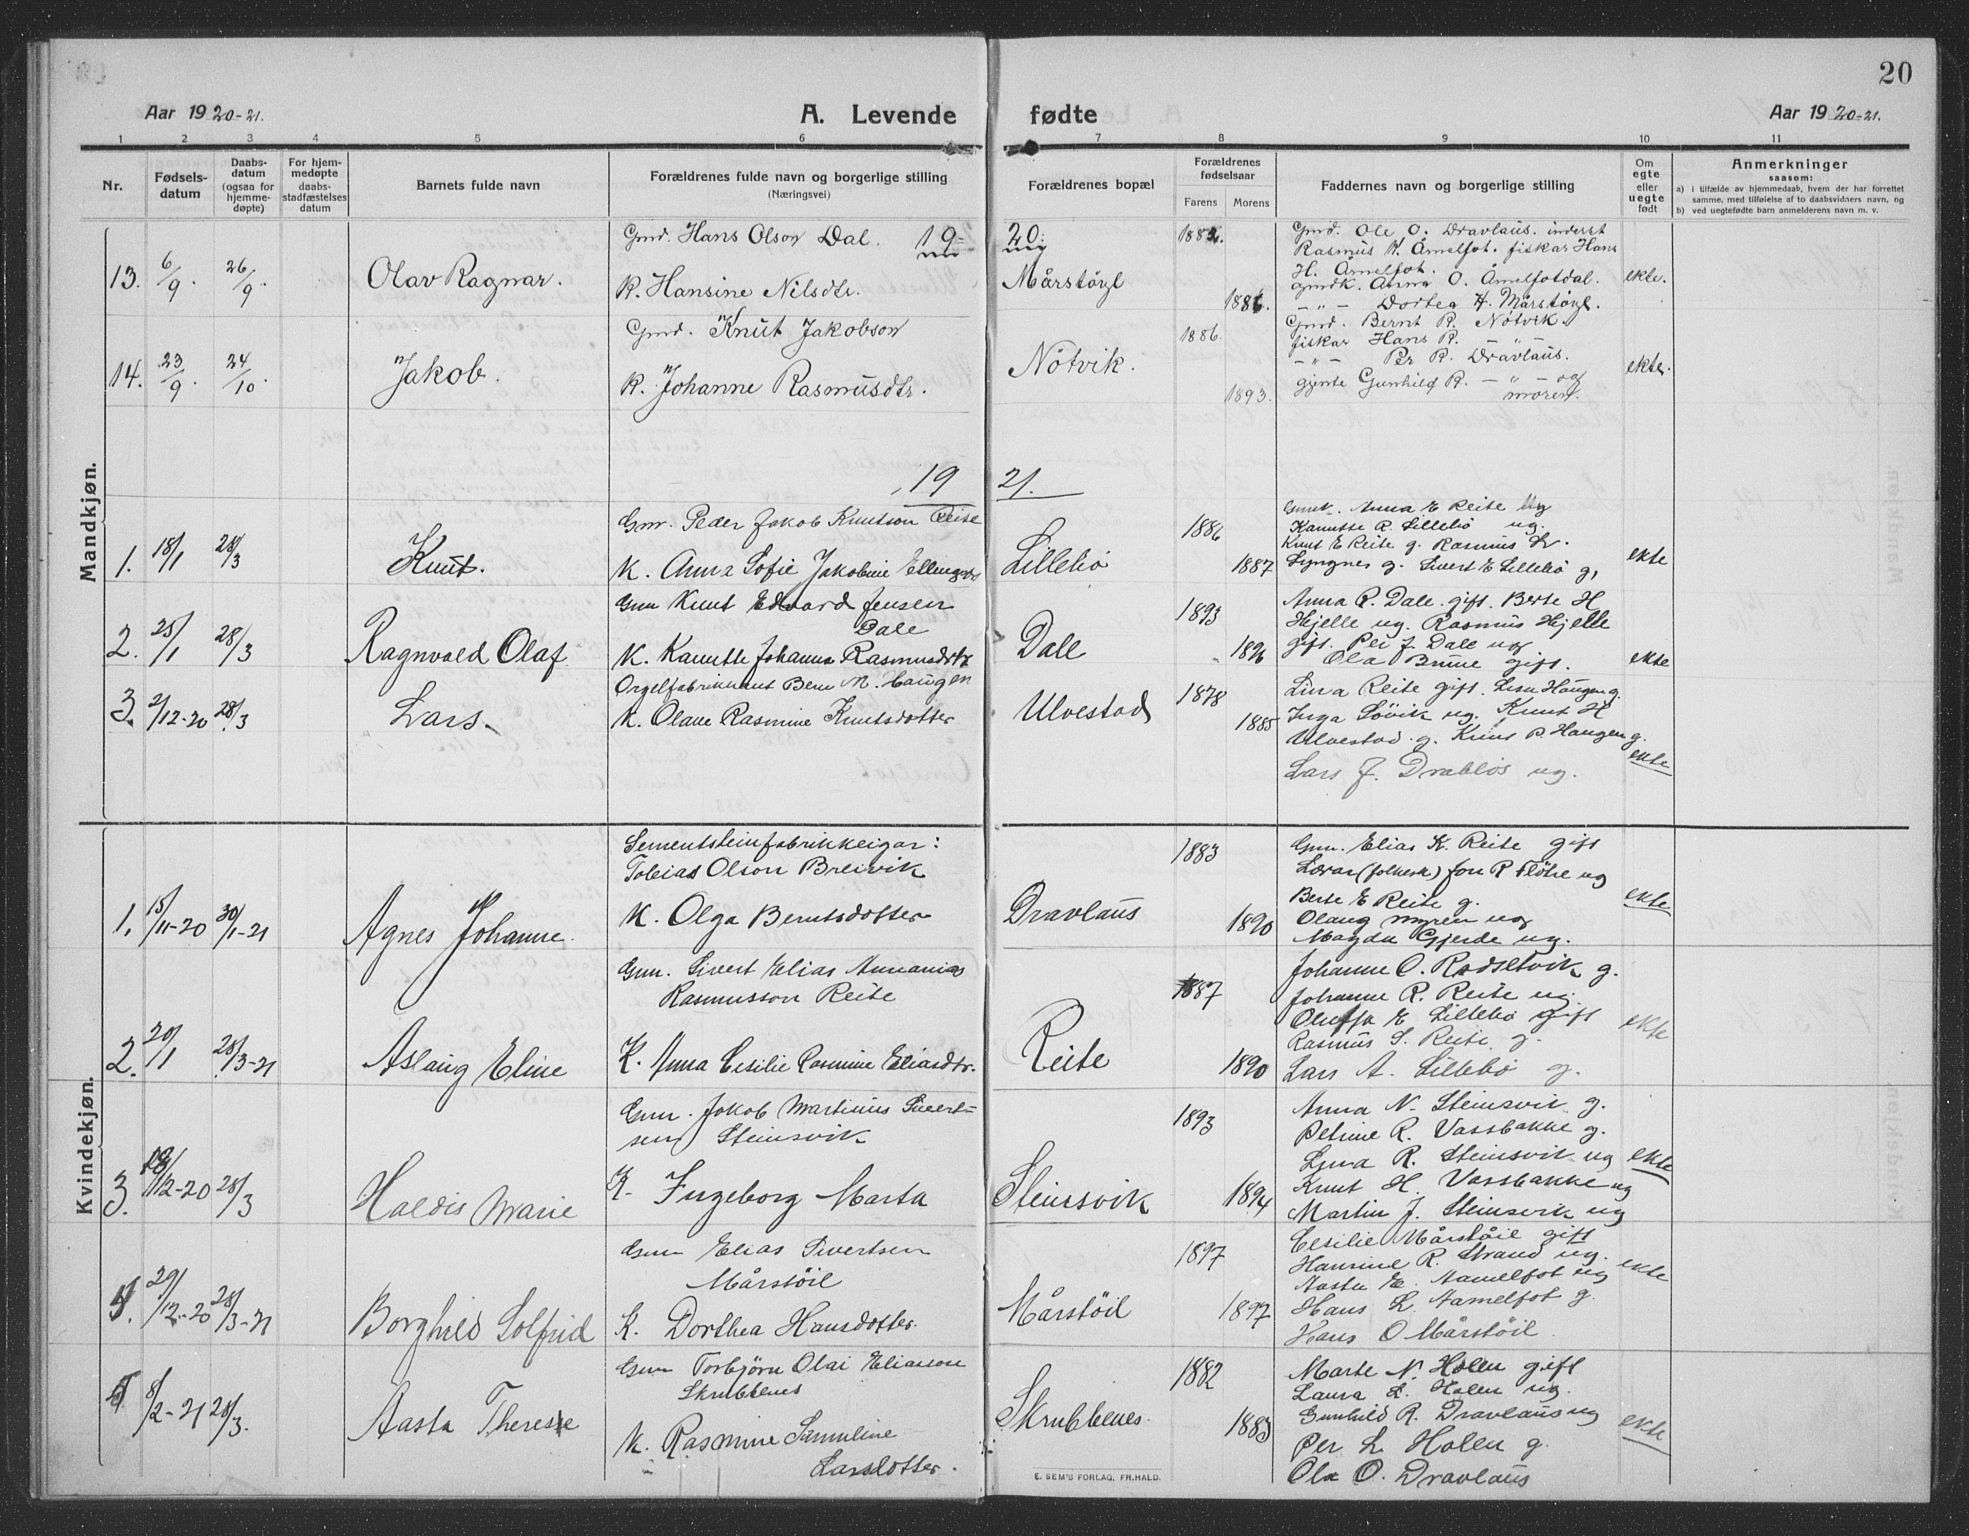 20
Aar 1920-21.
A. Levende
fødte
Aar 1920-21.
1 2 3 4 5 6 7 8 9 10 11
Nr.
Fødsels-
datum
Daabs-
datum
(ogsaa for
hjemme-
døpte)
For hjem-
medøpte
daabs-
stadfæstelses
datum
Barnets fulde navn
Forældrenes fulde navn og borgerlige stilling
(Næringsvei)
Forældrenes bopæl
Forældrenes
fødselsaar
Farens
Morens
Faddernes navn og borgerlige stilling
Om
egte
eller
uegte
født
Anmerkninger
saasom:
a) i tilfælde av hjemmedaab, hvem der har forrettet
samme, med tilføielse af to daabsvidners navn, og
b) ved uegtefødte barn anmelderens navn m. v.
Mandkjøn.
19 20.
13. 6/9. 26/9. Olav Ragnar.
Gmd. Hans Olson Dal.
K. Hansine Nilsdtr.
Mårstøyl
1882.
1886.
Gmd. Ole O. Dravlaus. inderst
Rasmus H. Åmelfot. fiskar Hans
H. Åmelfot.
gmdk. Anna O. Åmelfotdal.
– " – Dortea H. Mårstøyl.
ekte.
14. 23/9. 24/10. Jakob.
Gmd. Knut Jakobson
K. Johanne Rasmusdtr.
Nøtvik.
1886.
1893.
Gmd. Bernt R. Nøtvik.
fiskar Hans R. – " –
– " – Per R. Dravlaus.
gjente Gunhild R. – " – og
moren.
ekte.
19 21.
1. 18/1 28/3 Knut.
Gmr. Peder Jakob Knutson Reite
K. Anna Sofie Jakobine Ellingsdtr
Lillebø
1886
1887
Gmk. Anna E Reite ug
Kanutte R. Lillebø ug.
Knut E Reite g. Rasmus L.
Lyngnes g. Sivert E Lillebø g,
ekte
2. 25/1 28/3 Ragnvald Olaf
Gmr Knut Edvard Jensen
Dale
K. Kanutte Johanna Rasmusdtr
Dale
1893
1896
Anna R. Dale. gift. Berte H
Hjelle ug. Rasmus Hjelle
gift. Per J. Dale ug
Ola Brune gift.
ekte
3. 2/12-20 28/3 Lars
Orgelfabrikant Bern M. Haugen
K. Olave Rasmine Knutsdotter
Ulvestad
1878
1885
Lina Reite gift. Lisa Haugen g.
Inga Løvik ug. Knut H
Ulvestad g. Knut P. Haugen g.
Lars J. Drabløs ug.
ekte
Kvindekjøn.
1. 15/11-20 30/1-21 Agnes Johanne.
Sementsteinfabrikkeigar:
Tobias Olson Breivik
K. Olga Berntsdotter
Dravlaus
1883
1890
Gmr. Elias K. Reite gift
Lærar (folkesk) Jon R Fløtre ug
Berte E Reite g.
Olaug Myren ug
Magda Gjerde ug.
ekte
2. 20/1 28/3-21 Aslaug Eline
Gmr. Sivert Elias Annanias
Rasmusson Reite
K. Anna Cesilie Rasmine Eliasdtr.
Reite
1887
1890
Johanne O. Rødsetvik g.
Johanne R. Reite ug.
Oluffa E Lillebø gift
Rasmus S. Reite g.
Lars A. Lillebø g.
ekte
3. 18/12-20 28/3 Haldis Marie
Gmr. Jakob Martinus Sivert-
sen Steinsvik
K. Ingeborg Marta
Steinsvik
1893
1894
Anna N. Steinsvik g.
Petrine R. Vassbakke g.
Lina R. Steinsvik ug
Knut H. Vassbakke ug
Martin J. Steinsvik ug
ekte
4. 29/12-20 28/3-21 Borghild Solfrid
Gmr Elias Sivertsen
Mårstøil
K. Dorthea Hansdotter.
Mårstøil
1897
1897
Cesilie Mårstøil gift
Hansine R. Strand ug.
Aasta E. Aamelfot ug
Hans L. Aamelfot g.
Hans O Mårstøil
ekte
5 8/2-21 28/3. Aasta Therese
Gmr Torbjørn Olai Eliasson
Skrubbenes
K. Rasmine Samuline
Larsdotter.
Skrubbenes.
1882
1883
Marte N. Holen gift
Laura L. Holen ug.
Gunhild R. Dravlaus ug
Per L Holen g.
Ola O. Dravlaus
ekte
E. SEM'S FORLAG, FR.HALD.